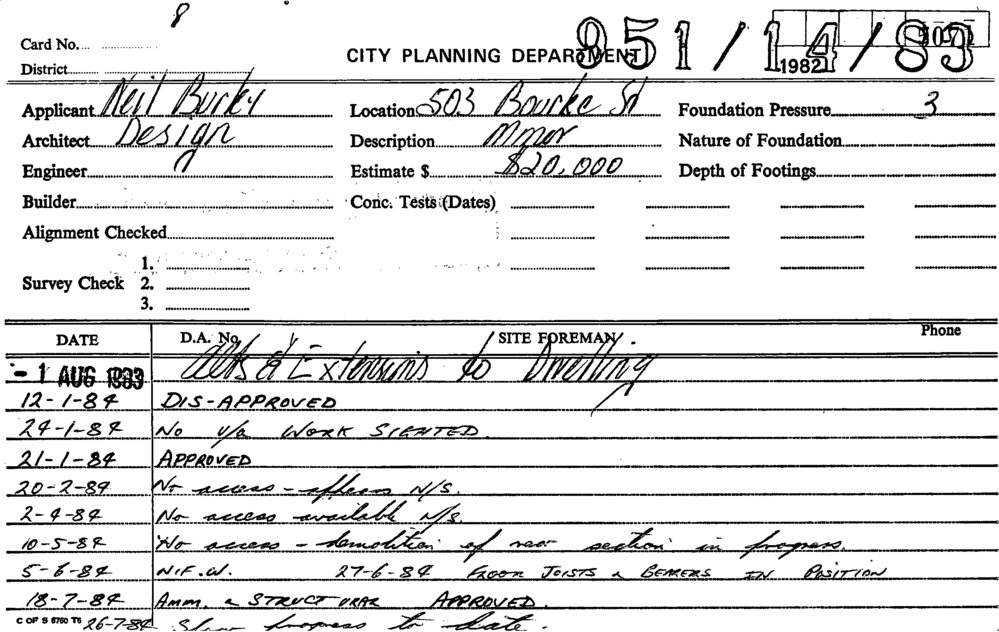 8
Card No.
CITY PLANNING DEPARTMENT
951/14/83
1982
District
Applicant Neil Burley Location 503 Bourke St Foundation Pressure 3
Architect Design Description Minor Nature of Foundation
Engineer Estimate $ $20,000 Depth of Footings
Builder Conc. Tests (Dates)
Alignment Checked
1.
Survey Check 2.
3.
DATE D.A. No. SITE FOREMAN Phone
- 1 AUG 1983 Alts & Extensions to Dwelling
12-1-84 DIS-APPROVED
24-1-84 No u/a WORK SIGHTED.
21-1-84 APPROVED
20-2-84 No access - appears N/S.
2-4-84 No access available N/S.
10-5-84 No access - demolition of rear section in progress.
5-6-84 N.F.W. 27-6-84 FLOOR JOISTS & BEARERS IN POSITION
18-7-84 Amm. & STRUCTURAL APPROVED.
C OF S 6760 T6 26-7-84 Slow progress to date.